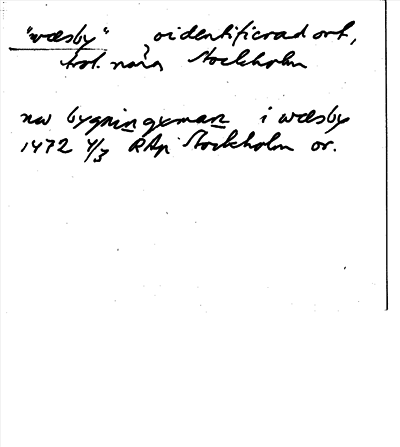 "wæsby" oidentifierad ort,
trol. nära Stockholm
nw bygningxman i wæsby
1472 4/3 RAp Stockholm or.